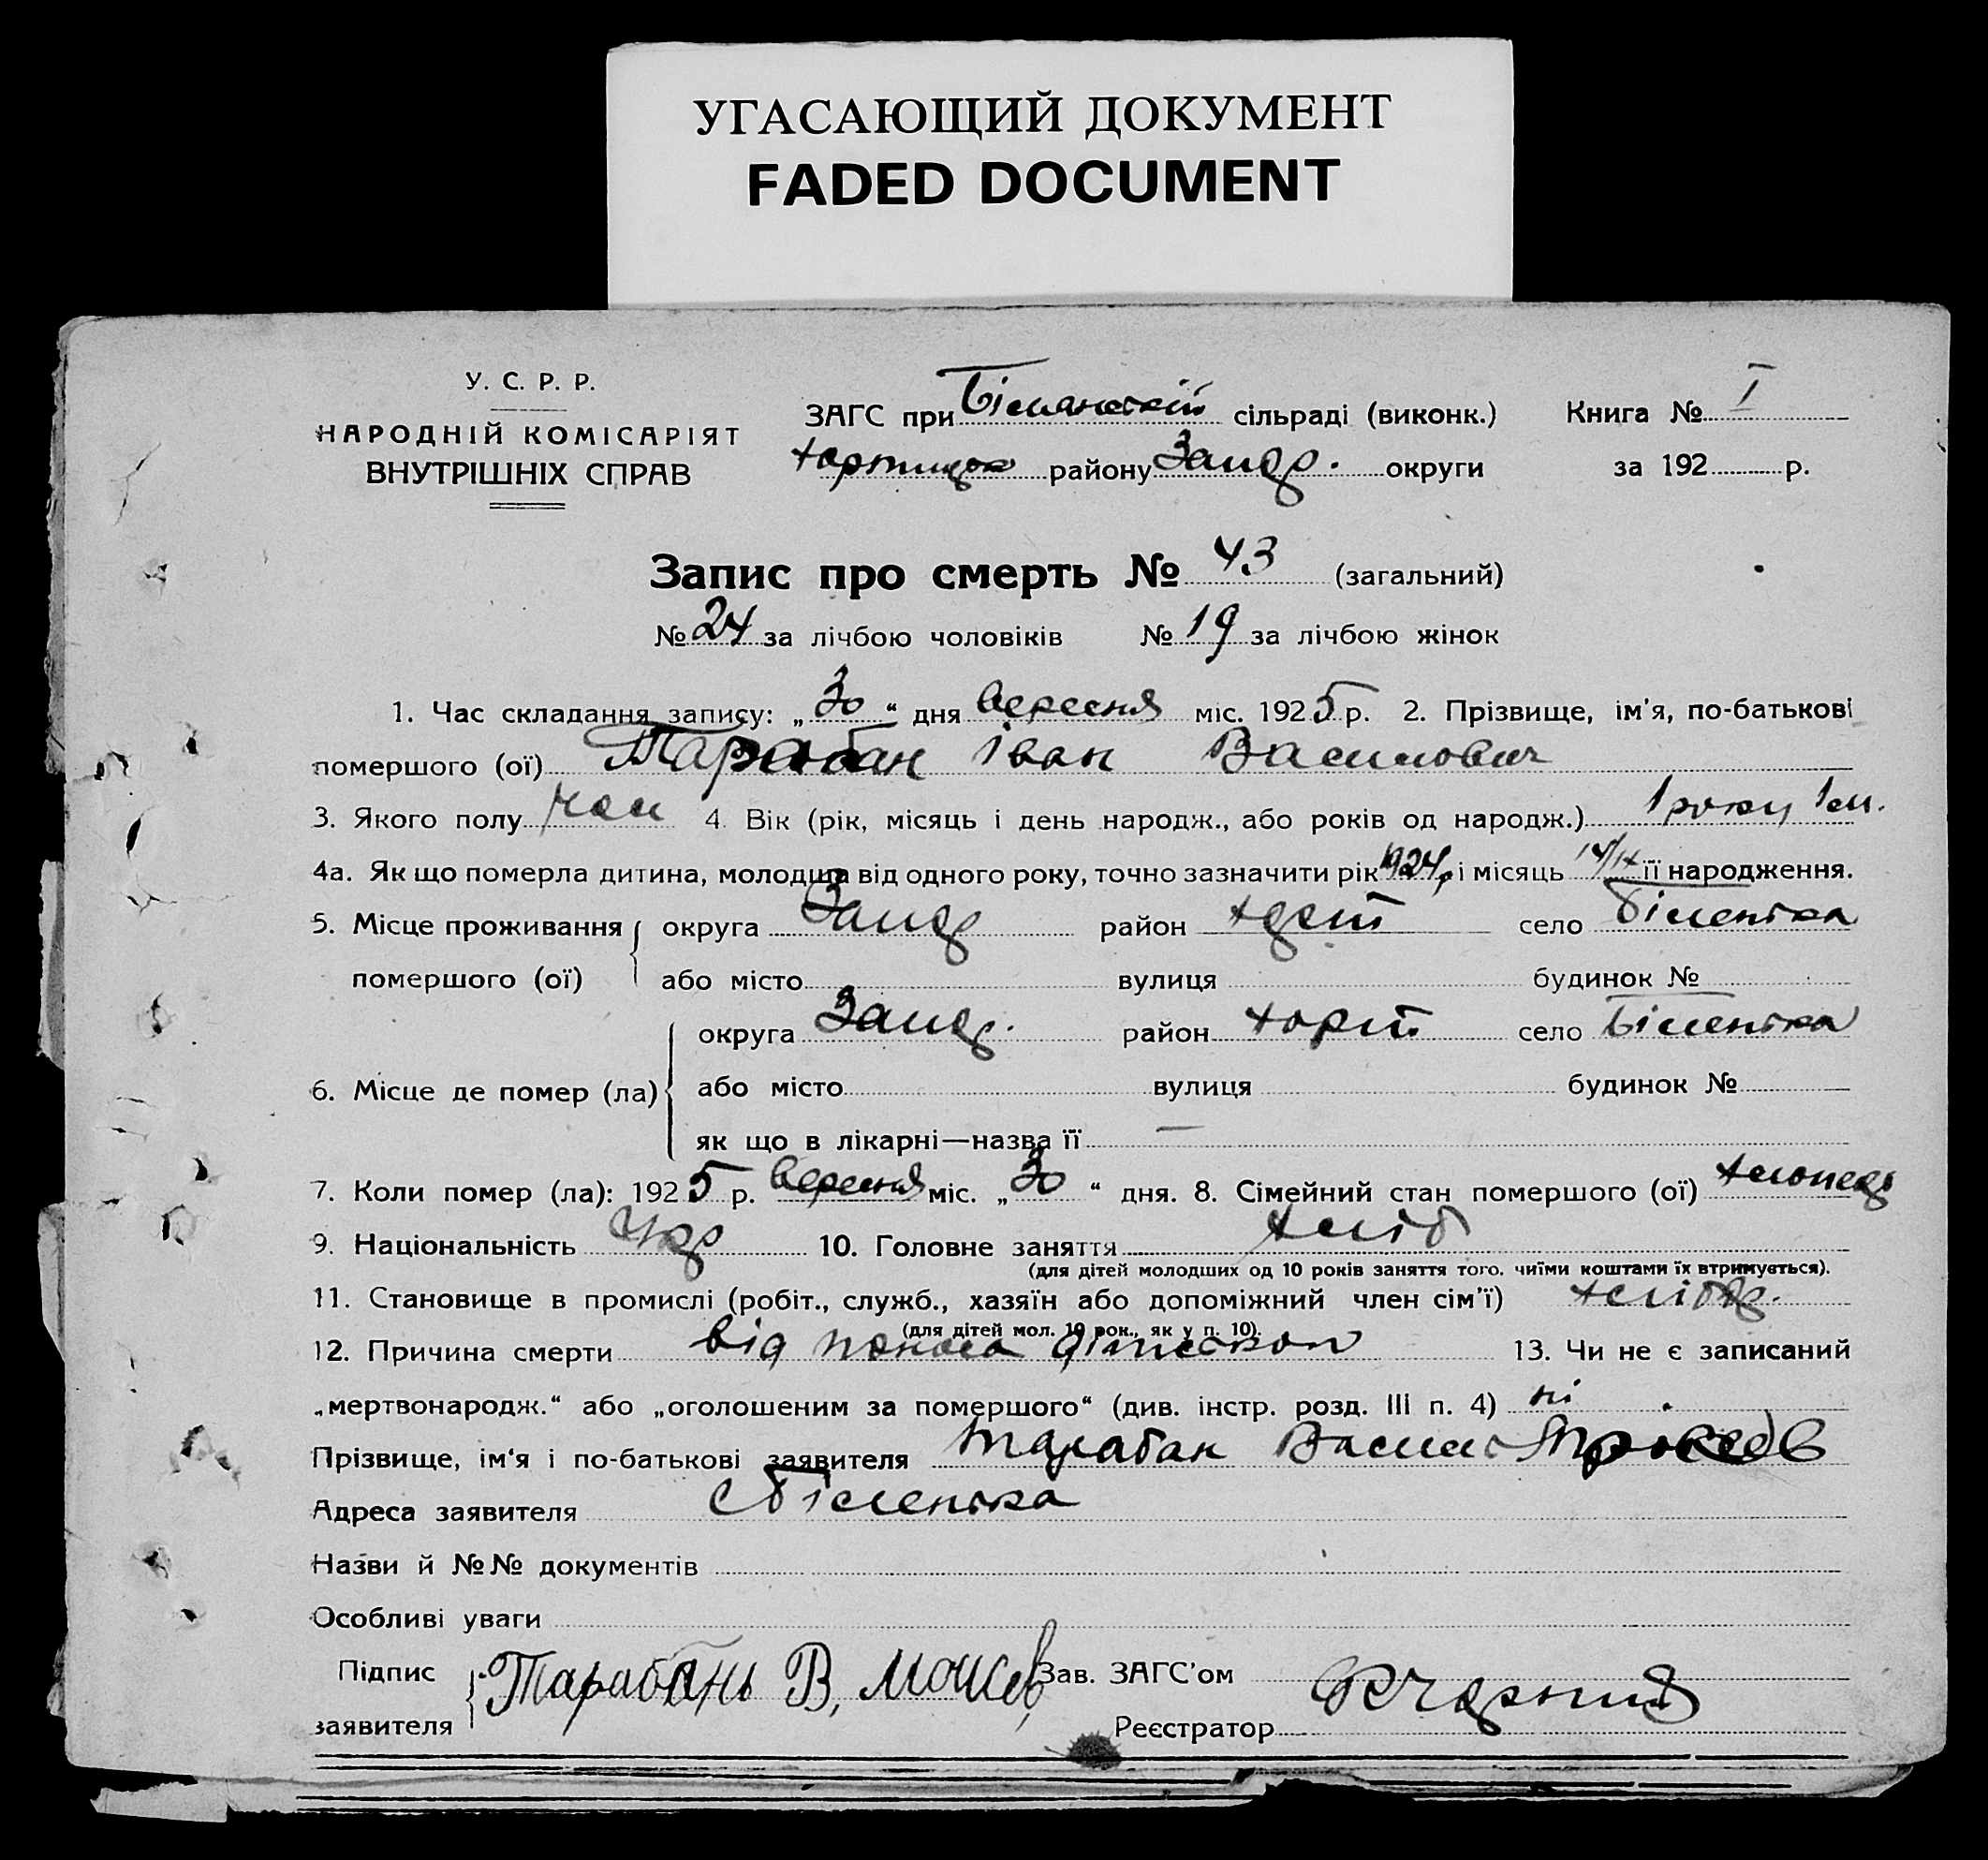 УГАСАЮЩИЙ ДОКУМЕНТ
FADED DOCUMENT
У. С. Р. Р.
НАРОДНІЙ КОМІСАРІЯТ
ВНУТРІШНІХ СПРАВ
ЗАГС при сільраді (виконк.)
району Запор. округи
Книга № I
за 192 р.
Запис про смерть № 43 (загальний)
№ 24 за лічбою чоловіків № 19 за лічбою жінок
1. Час складання запису: „ 30 “ дня вересня міс. 1925 р. 2. Прізвище, ім'я, по-батькові
помершого (ої) Тарабан Іван Василович
3. Якого полу чол 4. Вік (рік, місяць і день народж., або років од народж.) 1 року 1 м.
4а. Як що померла дитина, молодша від одного року, точно зазначити рік 1924 р і місяць 14/IX її народження.
5. Місце проживання округа Запор район село Біленька
помершого (ої) або місто вулиця будинок №
округа Запор. район Хорт село Біленька
6. Місце де помер (ла) або місто вулиця будинок №
як що в лікарні—назва її —
7. Коли помер (ла): 1925 р. вересня міс. „ 30 “ дня. 8. Сімейний стан помершого (ої) хлопець
9. Національність Укр 10. Головне заняття хліб
(для дітей молодших од 10 років заняття того, чиїми коштами їх втримується).
11. Становище в промислі (робіт., служб., хазяїн або допоміжний член сім'ї) хлібор.
(для дітей мол. 10 рок., як у п. 10).
12. Причина смерти від поноса 13. Чи не є записаний
„мертвонародж.“ або „оголошеним за помершого“ (див. інстр. розд. III п. 4) ні
Прізвище, ім'я і по-батькові заявителя Тарабан Васил
Адреса заявителя с Біленька
Назви й №№ документів
Особливі уваги
Підпис заявителя Тарабань В. Моисев
Зав. ЗАГС'ом
Реєстратор